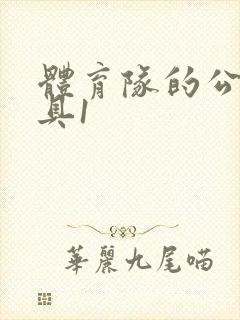 體育隊的公
具1
華麗九尾喵